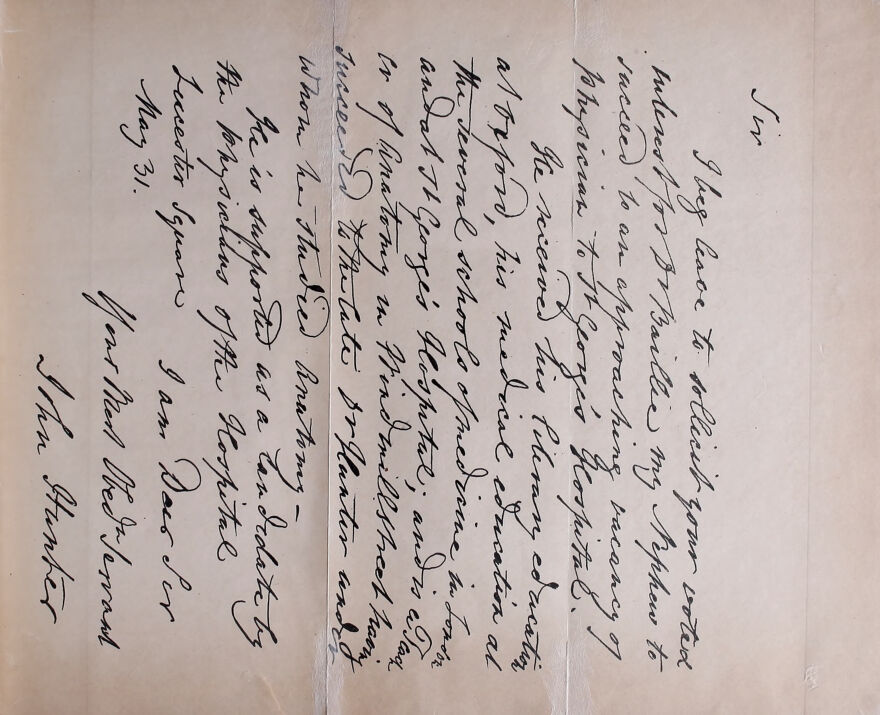 Sir
I beg leave to sollicit your vote &
interest for Dr Baillie my Nephew to
succeed to an approaching vacancy of
Physician to St Georges Hospital.
He received his literary education
at Oxford, his medical education at
the several schools of medicine in London
and at St Georges Hospital; and is a Teach
er of Anatomy in Windmill street having
succeeded to the late Dr Hunter under
whom he studied Anatomy –
He is supported as a Candidate by
the Physicians of the Hospital
Leicester Square I am Dear Sir
May 31.
Your Most Obedt Servant
John Hunter